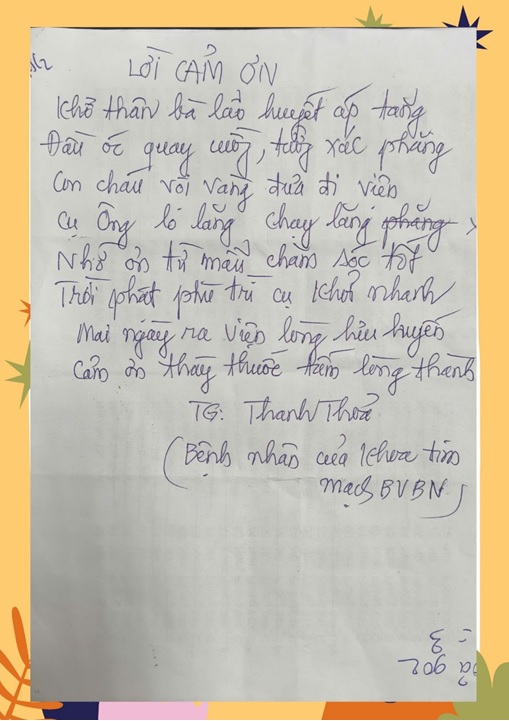 LỜI CẢM ƠN
Khổ thân bà lão huyết áp tăng
Đầu óc quay cuồng, tưởng xác phăng
Con cháu vội vàng đưa đi viện
Cụ Ông lo lắng chạy lăng phăng
Nhờ ơn từ mẫu chăm sóc tốt
Trời phật phù trì cụ khỏi nhanh
Mai ngày ra viện lòng lưu luyến
Cảm ơn thầy thuốc tấm lòng thành
TG: Thanh Thoả
(Bệnh nhân của Khoa tim
mạch BVBN)